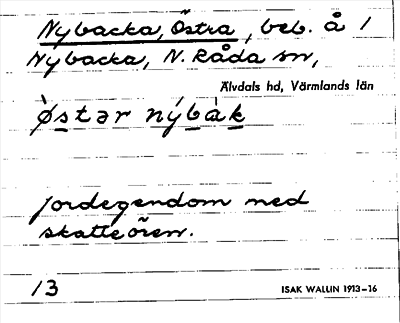 Nybacka, Östra, beb. å 1
Nybacka, N. Råda sn,
Älvdals hd, Värmlands län
ø̀stər nýbàk
jordegendom med
skatteören.
13 ISAK WALLIN 1913-16